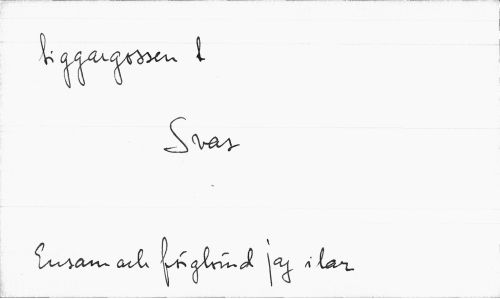 tiggargossen t
Svar
Ensam och förglömd jag ilar